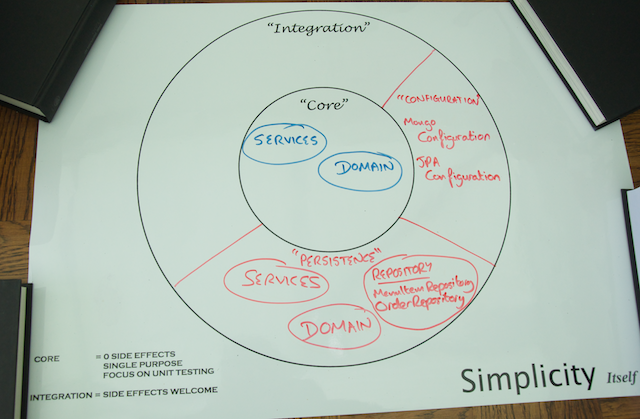 "Integration"
"Core"
SERVICES
DOMAIN
"CONFIGURATION"
Mongo
Configuration
JPA
Configuration
"PERSISTENCE"
SERVICES
DOMAIN
REPOSITORY
MenuItemRepository
OrderRepository
CORE = 0 SIDE EFFECTS
SINGLE PURPOSE
FOCUS ON UNIT TESTING
INTEGRATION = SIDE EFFECTS WELCOME
Simplicity Itself